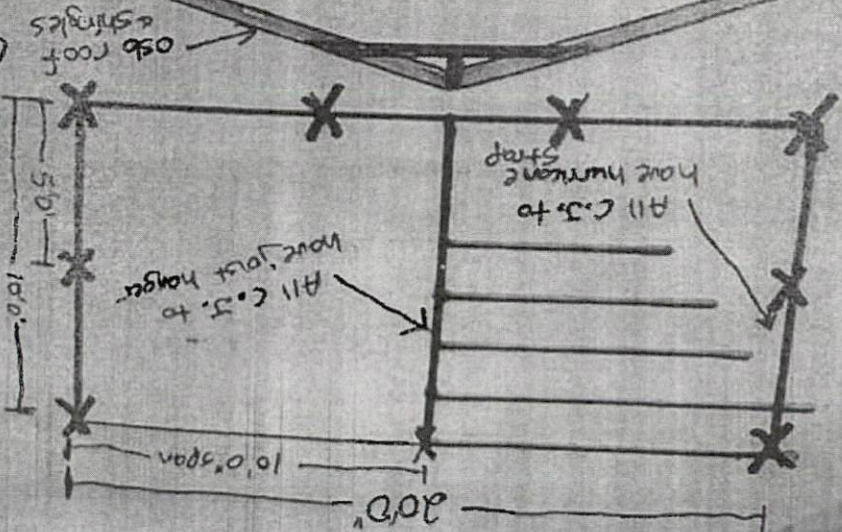 20'0"
10'0" span
All C.J. to
have joist hanger
All C.J. to
have hurricane
strap
10'0"
5'0"
osb roof
& shingles